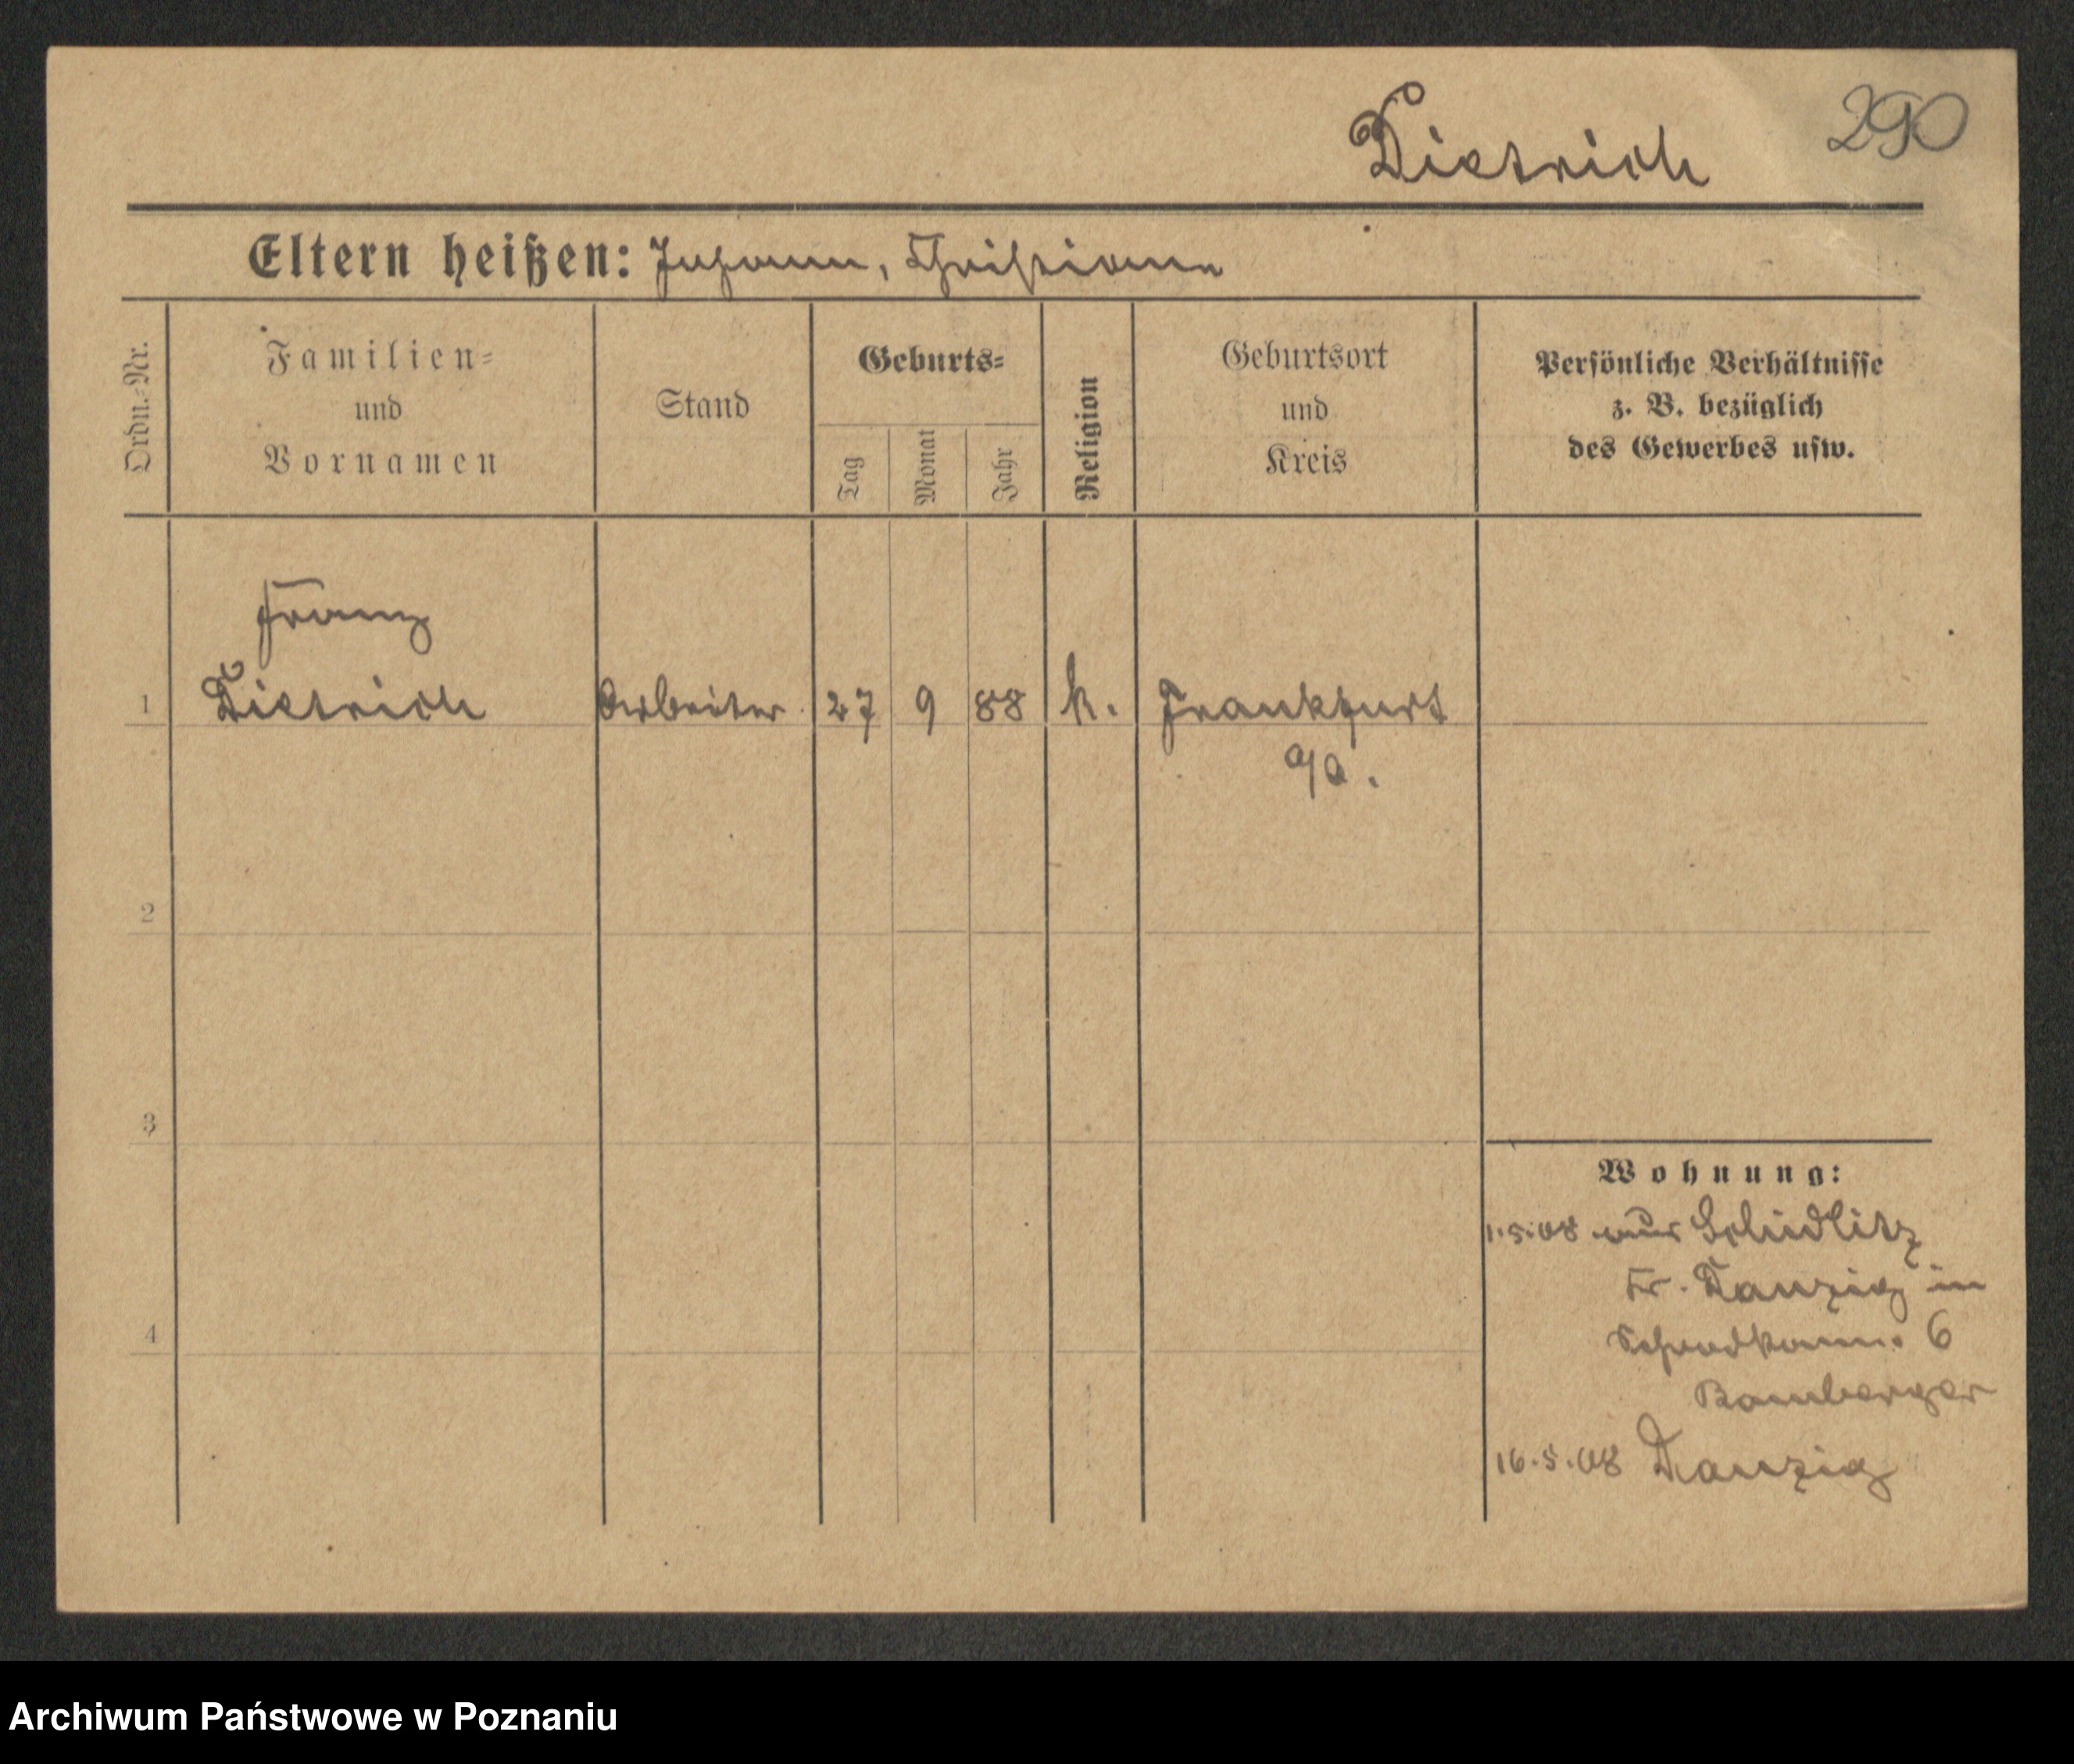 Dietrich 290
Eltern heißen: Johann, Christiane
Ordn.=Nr.
Familien=
und
Vornamen
Stand
Geburts=
Tag
Monat
Jahr
Religion
Geburtsort
und
Kreis
Persönliche Verhältnisse
z. B. bezüglich
des Gewerbes usw.
Franz
1 Dietrich Arbeiter 27 9 88 k. Frankfurt
a/O.
2
3
4
Wohnung:
1.5.08 aus Schidlitz
Kr. Danzig in
6
Bamberger
16.5.08 Danzig
Archiwum Państwowe w Poznaniu